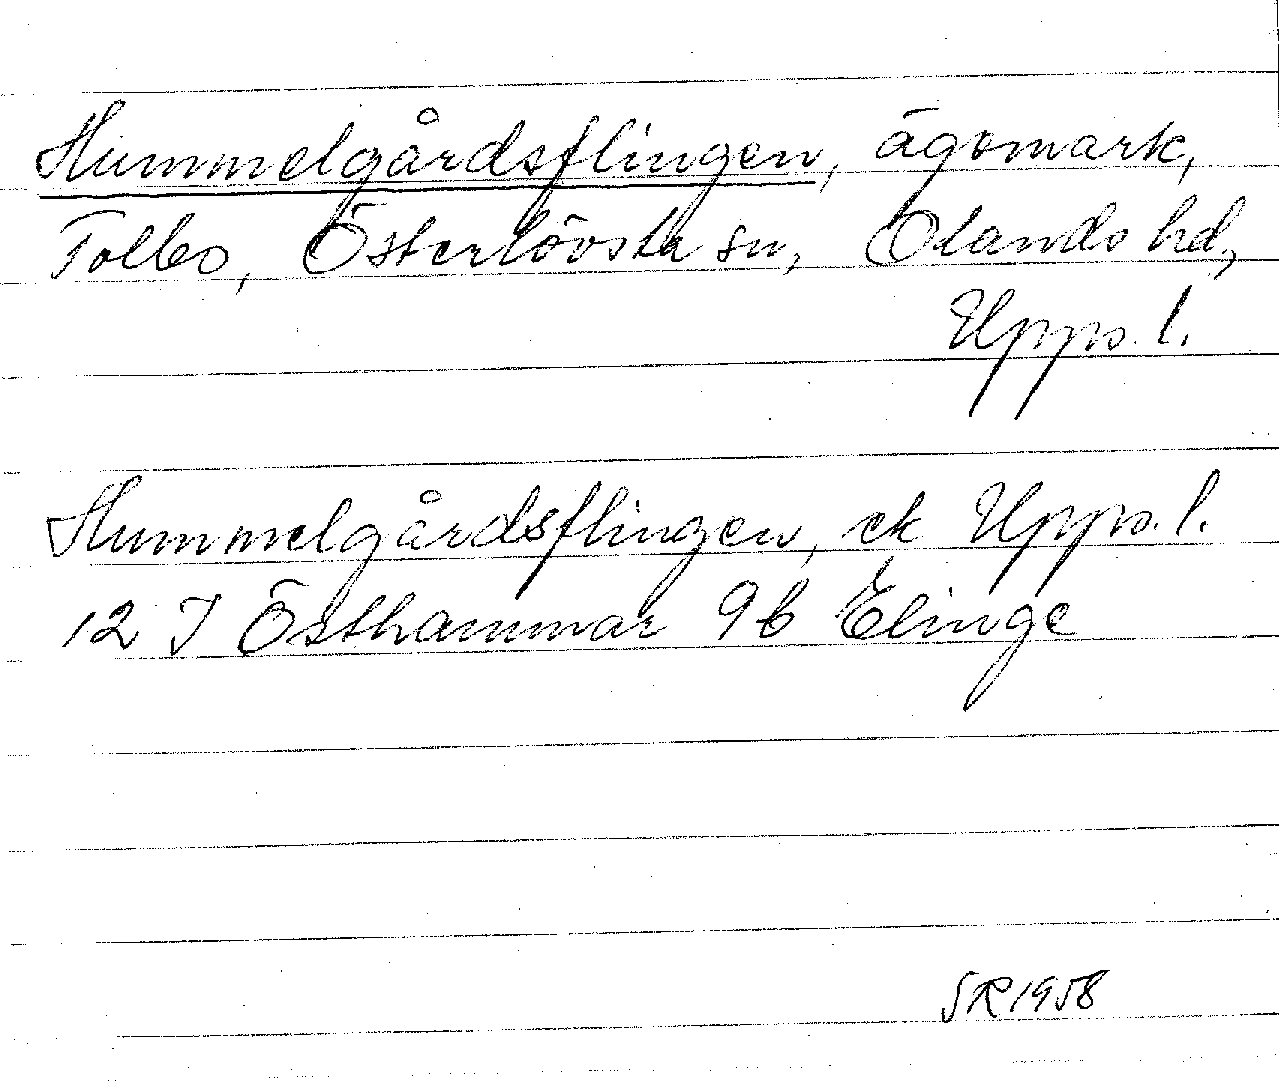 Hummelgårdsflingen, ägomark,
Tolbo, Österlövsta sn, Olands hd,
Upps. l.
Hummelgårdsflingen, ek Upps. l.
12 I Östhammar 9b Elinge
SR 1958